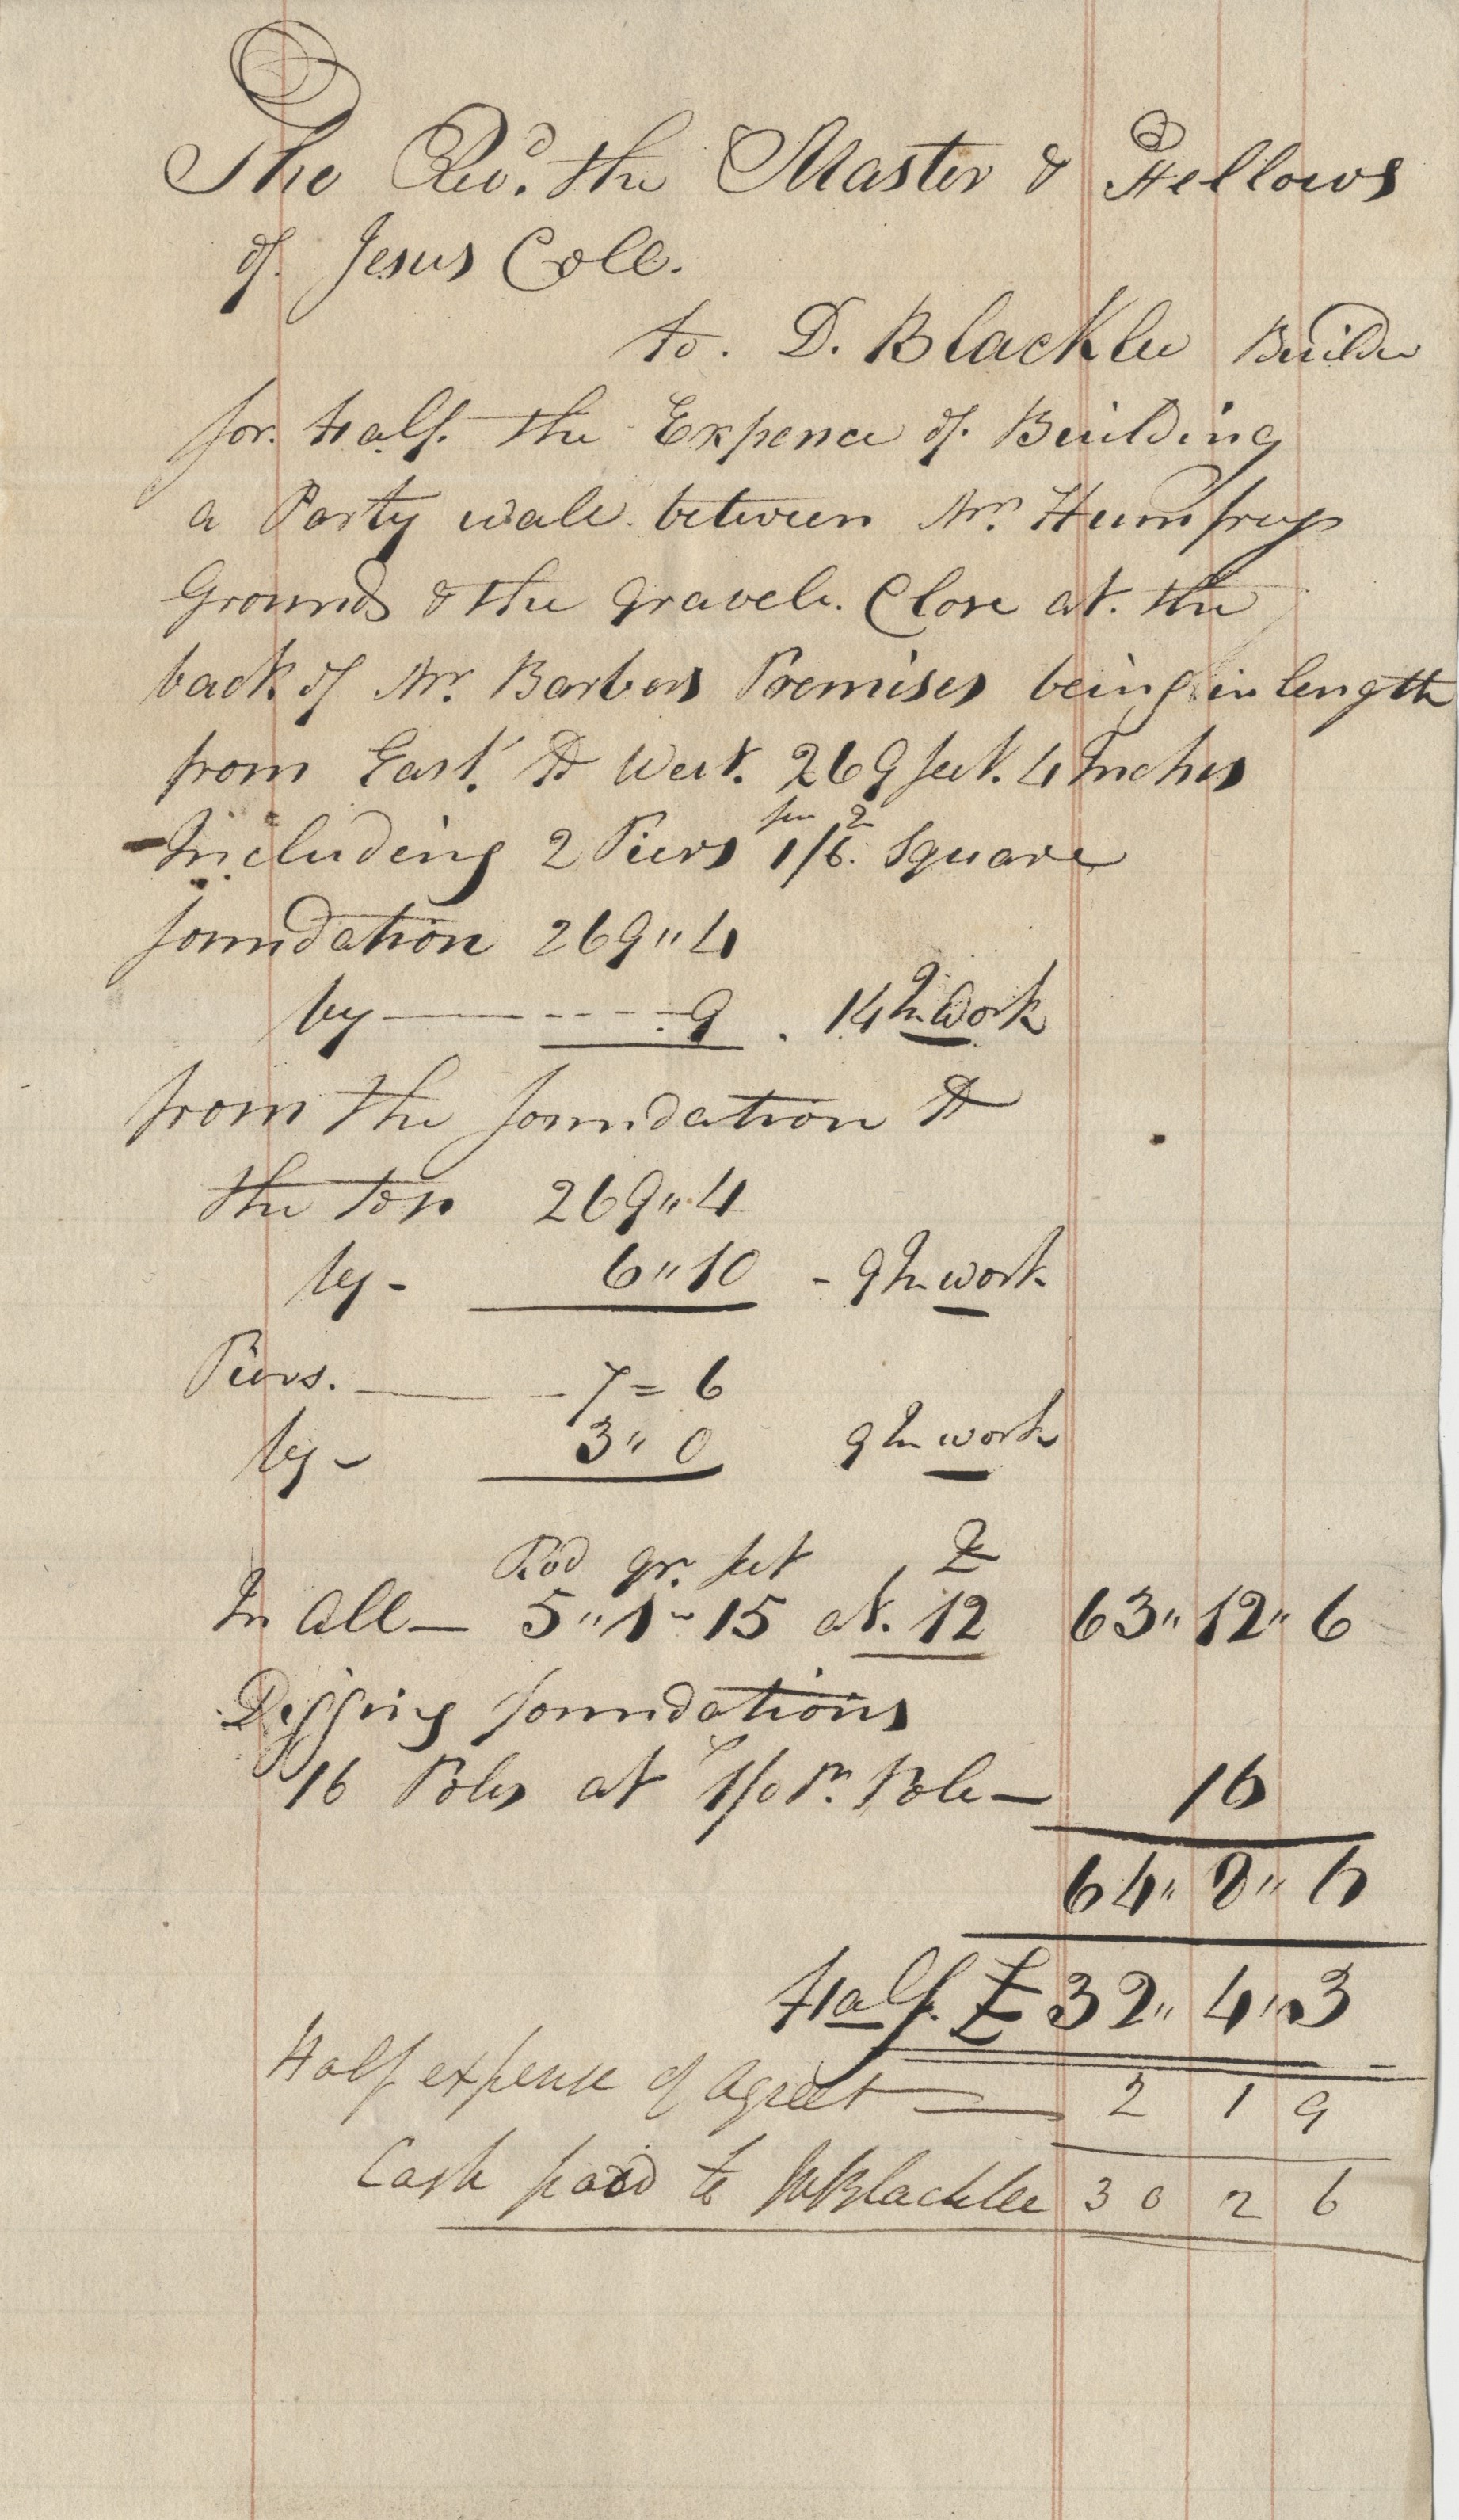 The Revd. the Master & Fellows
of Jesus Coll.
to. D. Blacklee Builder
for. Half. the Expence of. Building
a Party wall. between Mr. Humfreys
Grounds & the gravele. Close at. the
back of Mr. Barbers Premises being in length
from East. to West. 269 feet. 4 Inches
Including 2 Piers 1/6. Square
foundation 269,, 4
by 9. 14 In Work
from the foundation to
the top 269,, 4
by - 6,, 10 - 9 In work
Piers. 7 = 6
by - 3,, 0 9 In work
Rod qr. feet £
In All - 5,, 1 - 15 at. 12 63,, 12,, 6
Digging foundations
16 Poles at 1/0 Pr. Pole - 16
64,, 8,, 6
Half. £ 32,, 4,, 3
Half expense of Agreet 2 1 9
Cash paid to Mr Blacklee 30 2 6